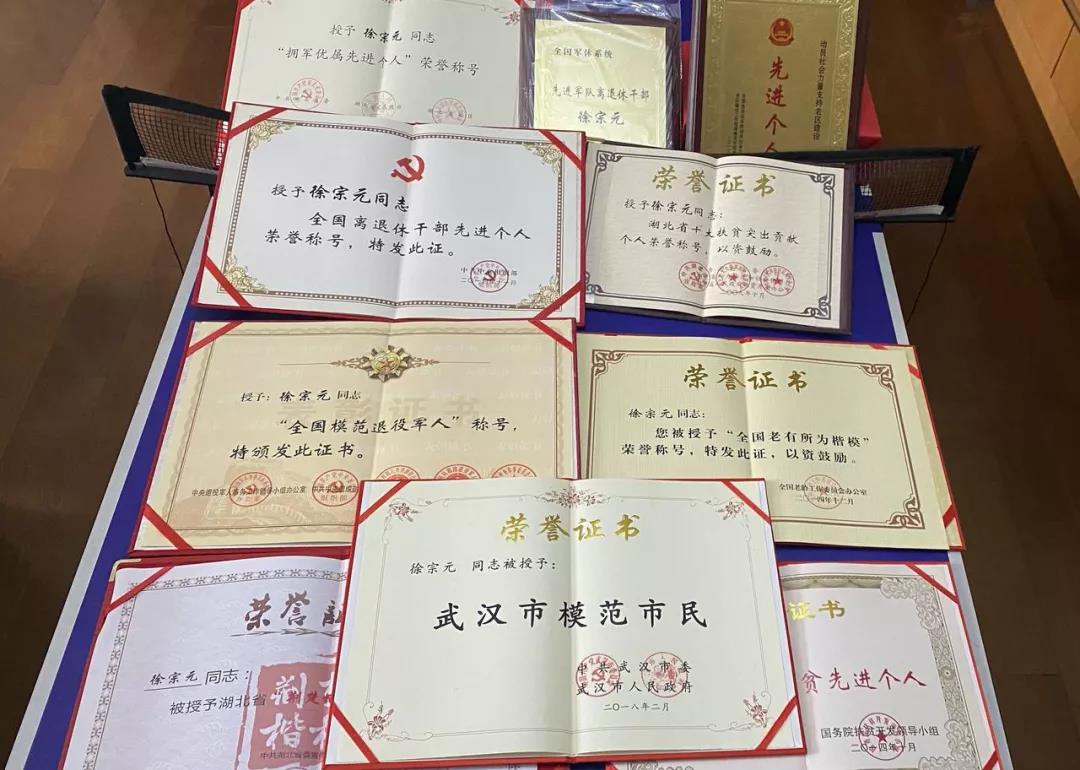 授予 徐宗元 同志
“拥军优属先进个人”荣誉称号
全国军休系统
先进军队离退休干部
徐宗元
先进个人
动员社会力量支持老区建设
授予徐宗元同志
全国离退休干部先进个人
荣誉称号，特发此证。
荣誉证书
授予徐宗元同志：
湖北省十大扶贫突出贡献
个人荣誉称号，以资鼓励。
授予：徐宗元 同志
“全国模范退役军人”称号，
特颁发此证书。
中央退役军人事务工作领导小组办公室
荣誉证书
徐宗元同志：
您被授予“全国老有所为楷模”
荣誉称号，特发此证，以资鼓励。
全国老龄工作委员会办公室
二〇一四年十二月
荣誉证书
徐宗元 同志被授予：
武汉市模范市民
中共武汉市委
武汉市人民政府
二〇一八年二月
荣誉
徐宗元 同志：
被授予湖北省
荆
楷
证书
贫先进个人
国务院扶贫开发领导小组
二〇一四年十月